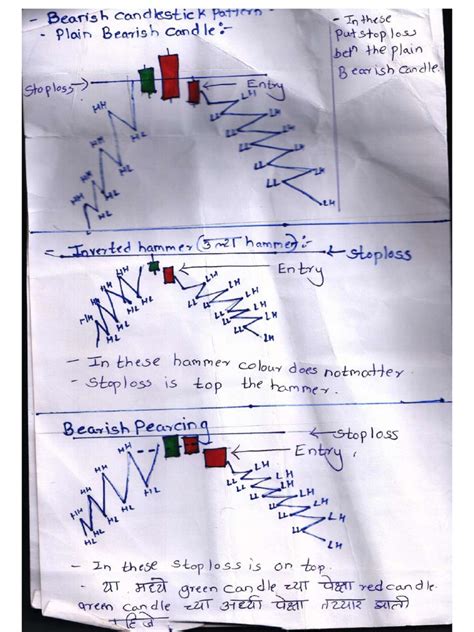 - Bearish candlestick Pattern -
- Plain Bearish Candle:-
- In these
Put stop loss
betn the plain
Bearish Candle.
Stoploss
Entry
HH
HH
HH
HL
HL
HL
LH
LH
LH
LH
LH
LL
LL
LL
LL
- Inverted hammer (उल्टा hammer):-
Stoploss
Entry
HH
HH
HH
HL
HL
LH
LH
LH
LH
LL
LL
LL
LL
- In these hammer colour does notmatter.
- Stoploss is top the hammer.
Bearish Pearcing
Stoploss
Entry.
HH
HH
HH
HL
HL
HL
LH
LH
LH
LH
LH
LL
LL
LL
LL
- In these stoploss is on top.
- या मध्ये green candle च्या पेक्षा red candle
green candle च्या अर्ध्या पेक्षा तय्यार झाली